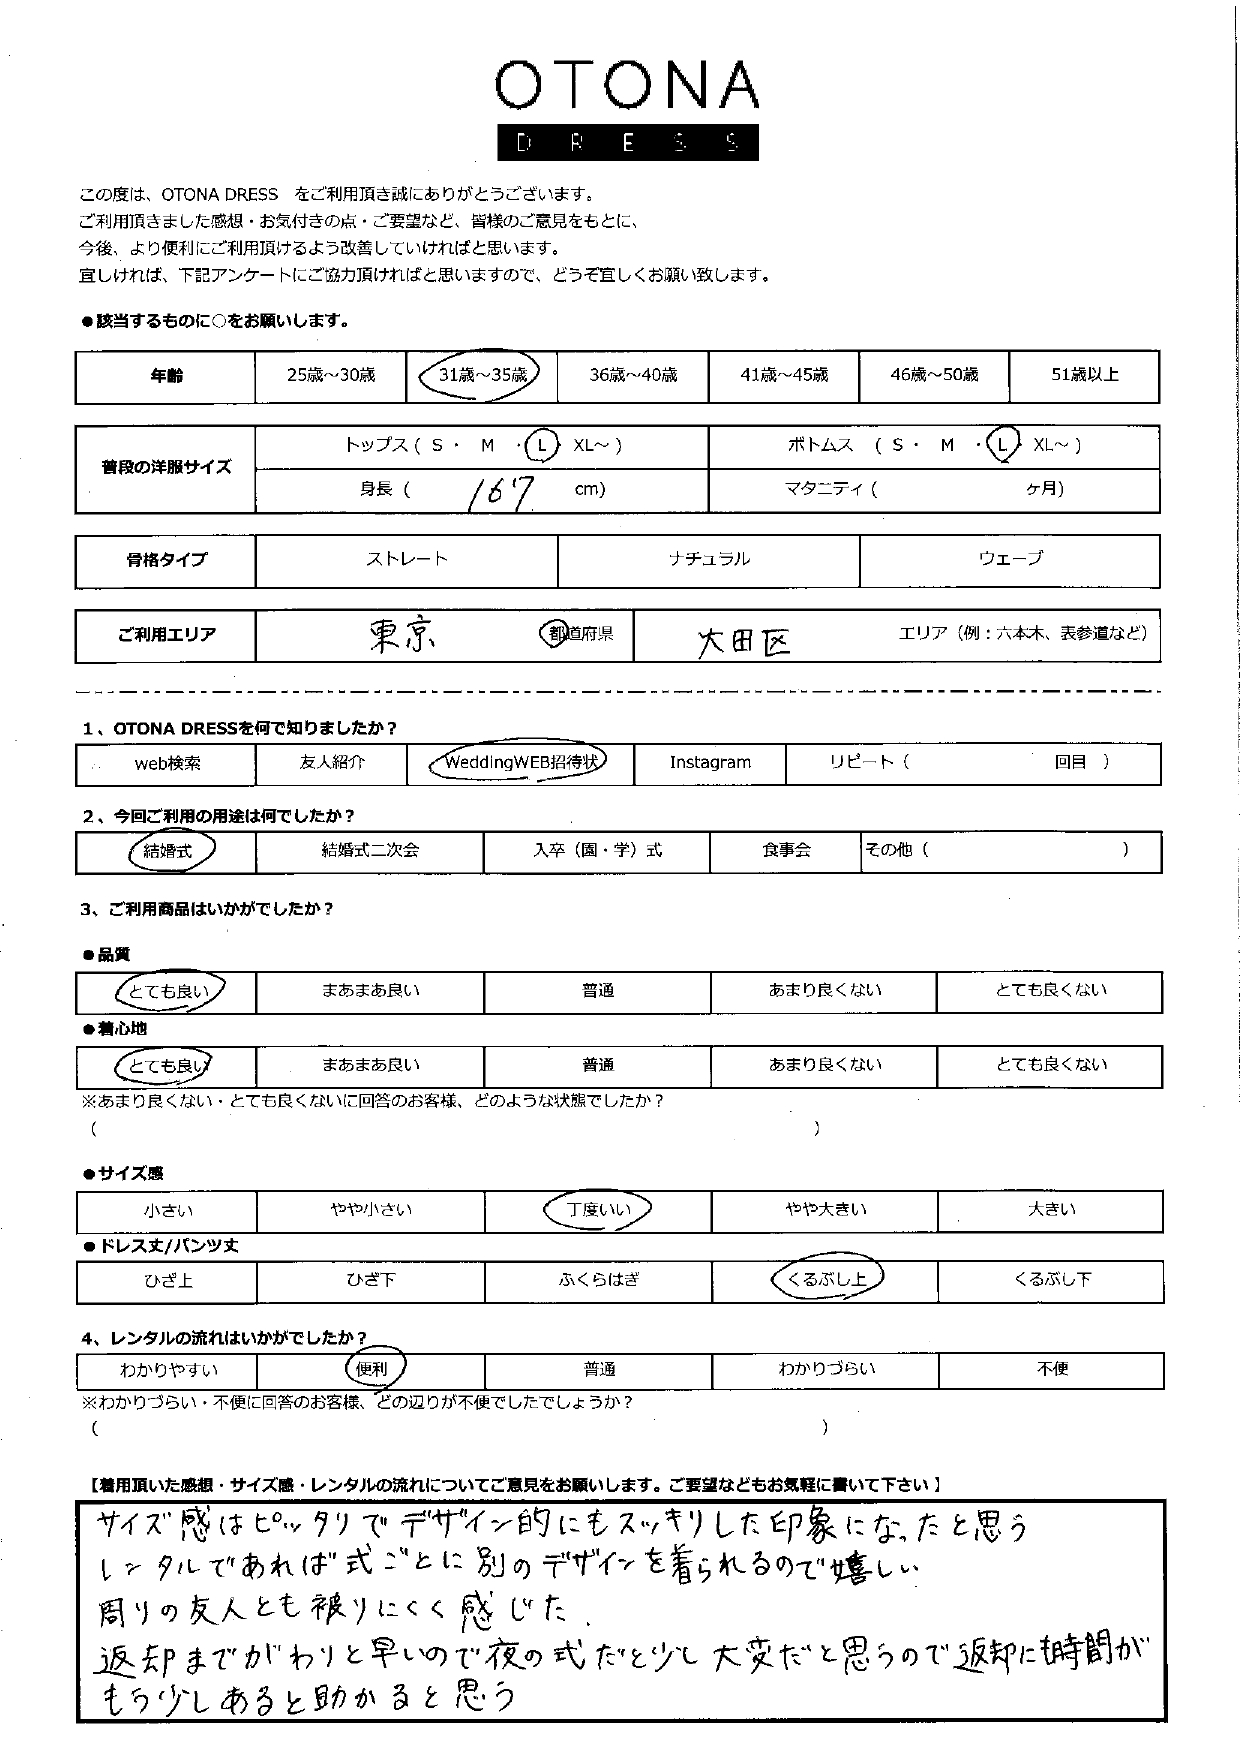 OTONA
DRESS
この度は、OTONA DRESS　をご利用頂き誠にありがとうございます。
ご利用頂きました感想・お気付きの点・ご要望など、皆様のご意見をもとに、
今後、より便利にご利用頂けるよう改善していければと思います。
宜しければ、下記アンケートにご協力頂ければと思いますので、どうぞ宜しくお願い致します。
●該当するものに○をお願いします。
年齢 25歳～30歳 31歳～35歳 36歳～40歳 41歳～45歳 46歳～50歳 51歳以上
普段の洋服サイズ トップス ( S ・ M ・ L ・ XL～ ) ボトムス ( S ・ M ・ L ・ XL～ )
身長 ( 167 cm) マタニティ ( ヶ月)
骨格タイプ ストレート ナチュラル ウェーブ
ご利用エリア 東京 都道府県 大田区 エリア（例：六本木、表参道など）
1、OTONA DRESSを何で知りましたか？
web検索 友人紹介 WeddingWEB招待状 Instagram リピート ( 回目 )
2、今回ご利用の用途は何でしたか？
結婚式 結婚式二次会 入卒（園・学）式 食事会 その他 ( )
3、ご利用商品はいかがでしたか？
●品質
とても良い まあまあ良い 普通 あまり良くない とても良くない
●着心地
とても良い まあまあ良い 普通 あまり良くない とても良くない
※あまり良くない・とても良くないに回答のお客様、どのような状態でしたか？
( )
●サイズ感
小さい やや小さい 丁度いい やや大きい 大きい
●ドレス丈/パンツ丈
ひざ上 ひざ下 ふくらはぎ くるぶし上 くるぶし下
4、レンタルの流れはいかがでしたか？
わかりやすい 便利 普通 わかりづらい 不便
※わかりづらい・不便に回答のお客様、どの辺りが不便でしたでしょうか？
( )
【着用頂いた感想・サイズ感・レンタルの流れについてご意見をお願いします。ご要望などもお気軽に書いて下さい】
サイズ感はピッタリでデザイン的にもスッキリした印象になったと思う
レンタルであれば式ごとに別のデザインを着られるので嬉しい
周りの友人とも被りにくく感じた.
返却までがわりと早いので夜の式だと少し大変だと思うので返却にも時間が
もう少しあると助かると思う